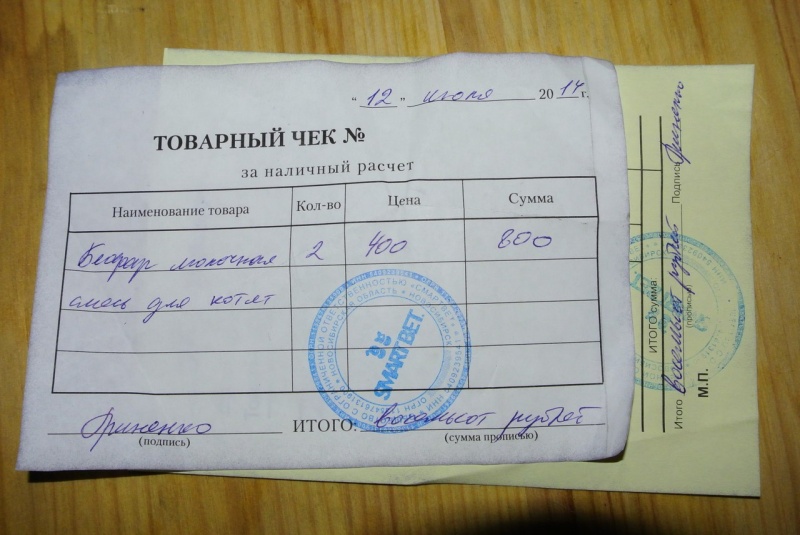 " 12 " июля 2014 г.
ТОВАРНЫЙ ЧЕК №
за наличный расчет
Наименование товара Кол-во Цена Сумма
Беафар молочная 2 400 800
смесь для котят
SMARTBET
НОВОСИБИРСКАЯ ОБЛАСТЬ
ИТОГО: восемьсот рублей
(подпись) (сумма прописью)
ИТОГО сумма
Итого восемьсот рублей Подпись
(прописью)
М.П.